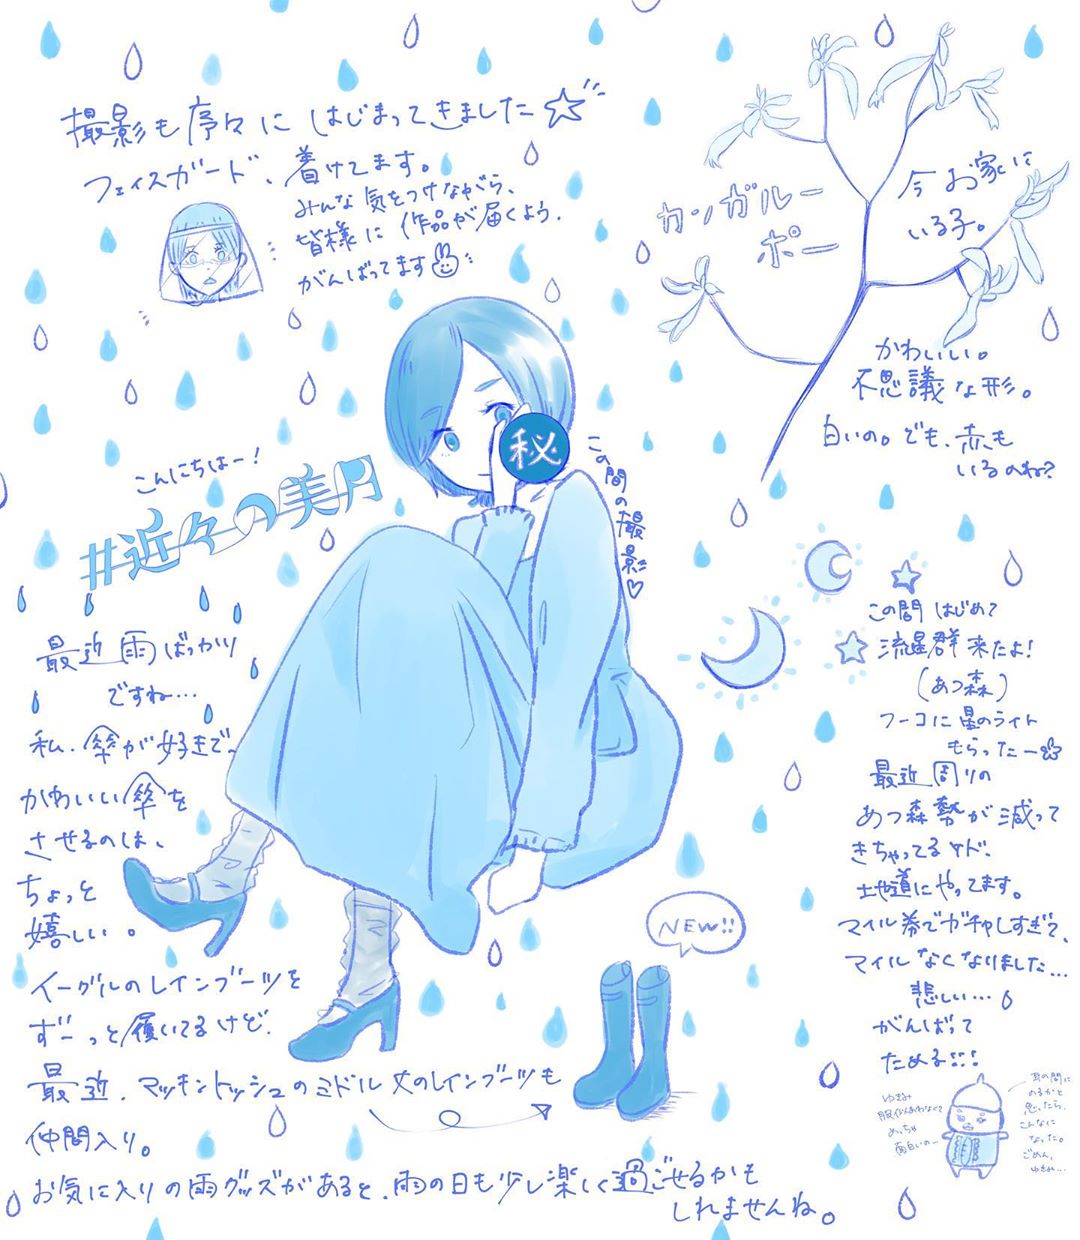 撮影も序々に はじまってきました☆
フェイスガード、着けてます。
みんな気をつけながら、
皆様に 作品が届くよう、
がんばってます
カンガルー
ポー
今お家に
いる子。
かわいい。
不思議な形。
白いの。でも、赤も
いるのね?
こんにちはー!
#近々の美月
秘
この間の撮影♡
最近雨ばっかり
ですね…
私、傘が好きで、
かわいい傘を
させるのは、
ちょっと
嬉しい。
イーグルのレインブーツを
ずーっと履いてるけど、
最近、マッキントッシュのミドル丈のレインブーツも
仲間入り。
お気に入りの雨グッズがあると、雨の日も少し楽しく過ごせるかも
しれませんね。
NEW!!
この間はじめて
流星群来たよ!
(あつ森)
フーコに星のライト
もらったー☆
最近周りの
あつ森勢が減って
きちゃってるケド、
地道にやってます。
マイル券でガチャしすぎて、
マイルなくなりました…
悲しい…
がんばって
ためる!!!
ゆきみ
服似合わなくて
めっちゃ
面白いのー
耳の間に
のるかと
思ったら、
こんなに
なった。
ごめん、
ゆきみ…